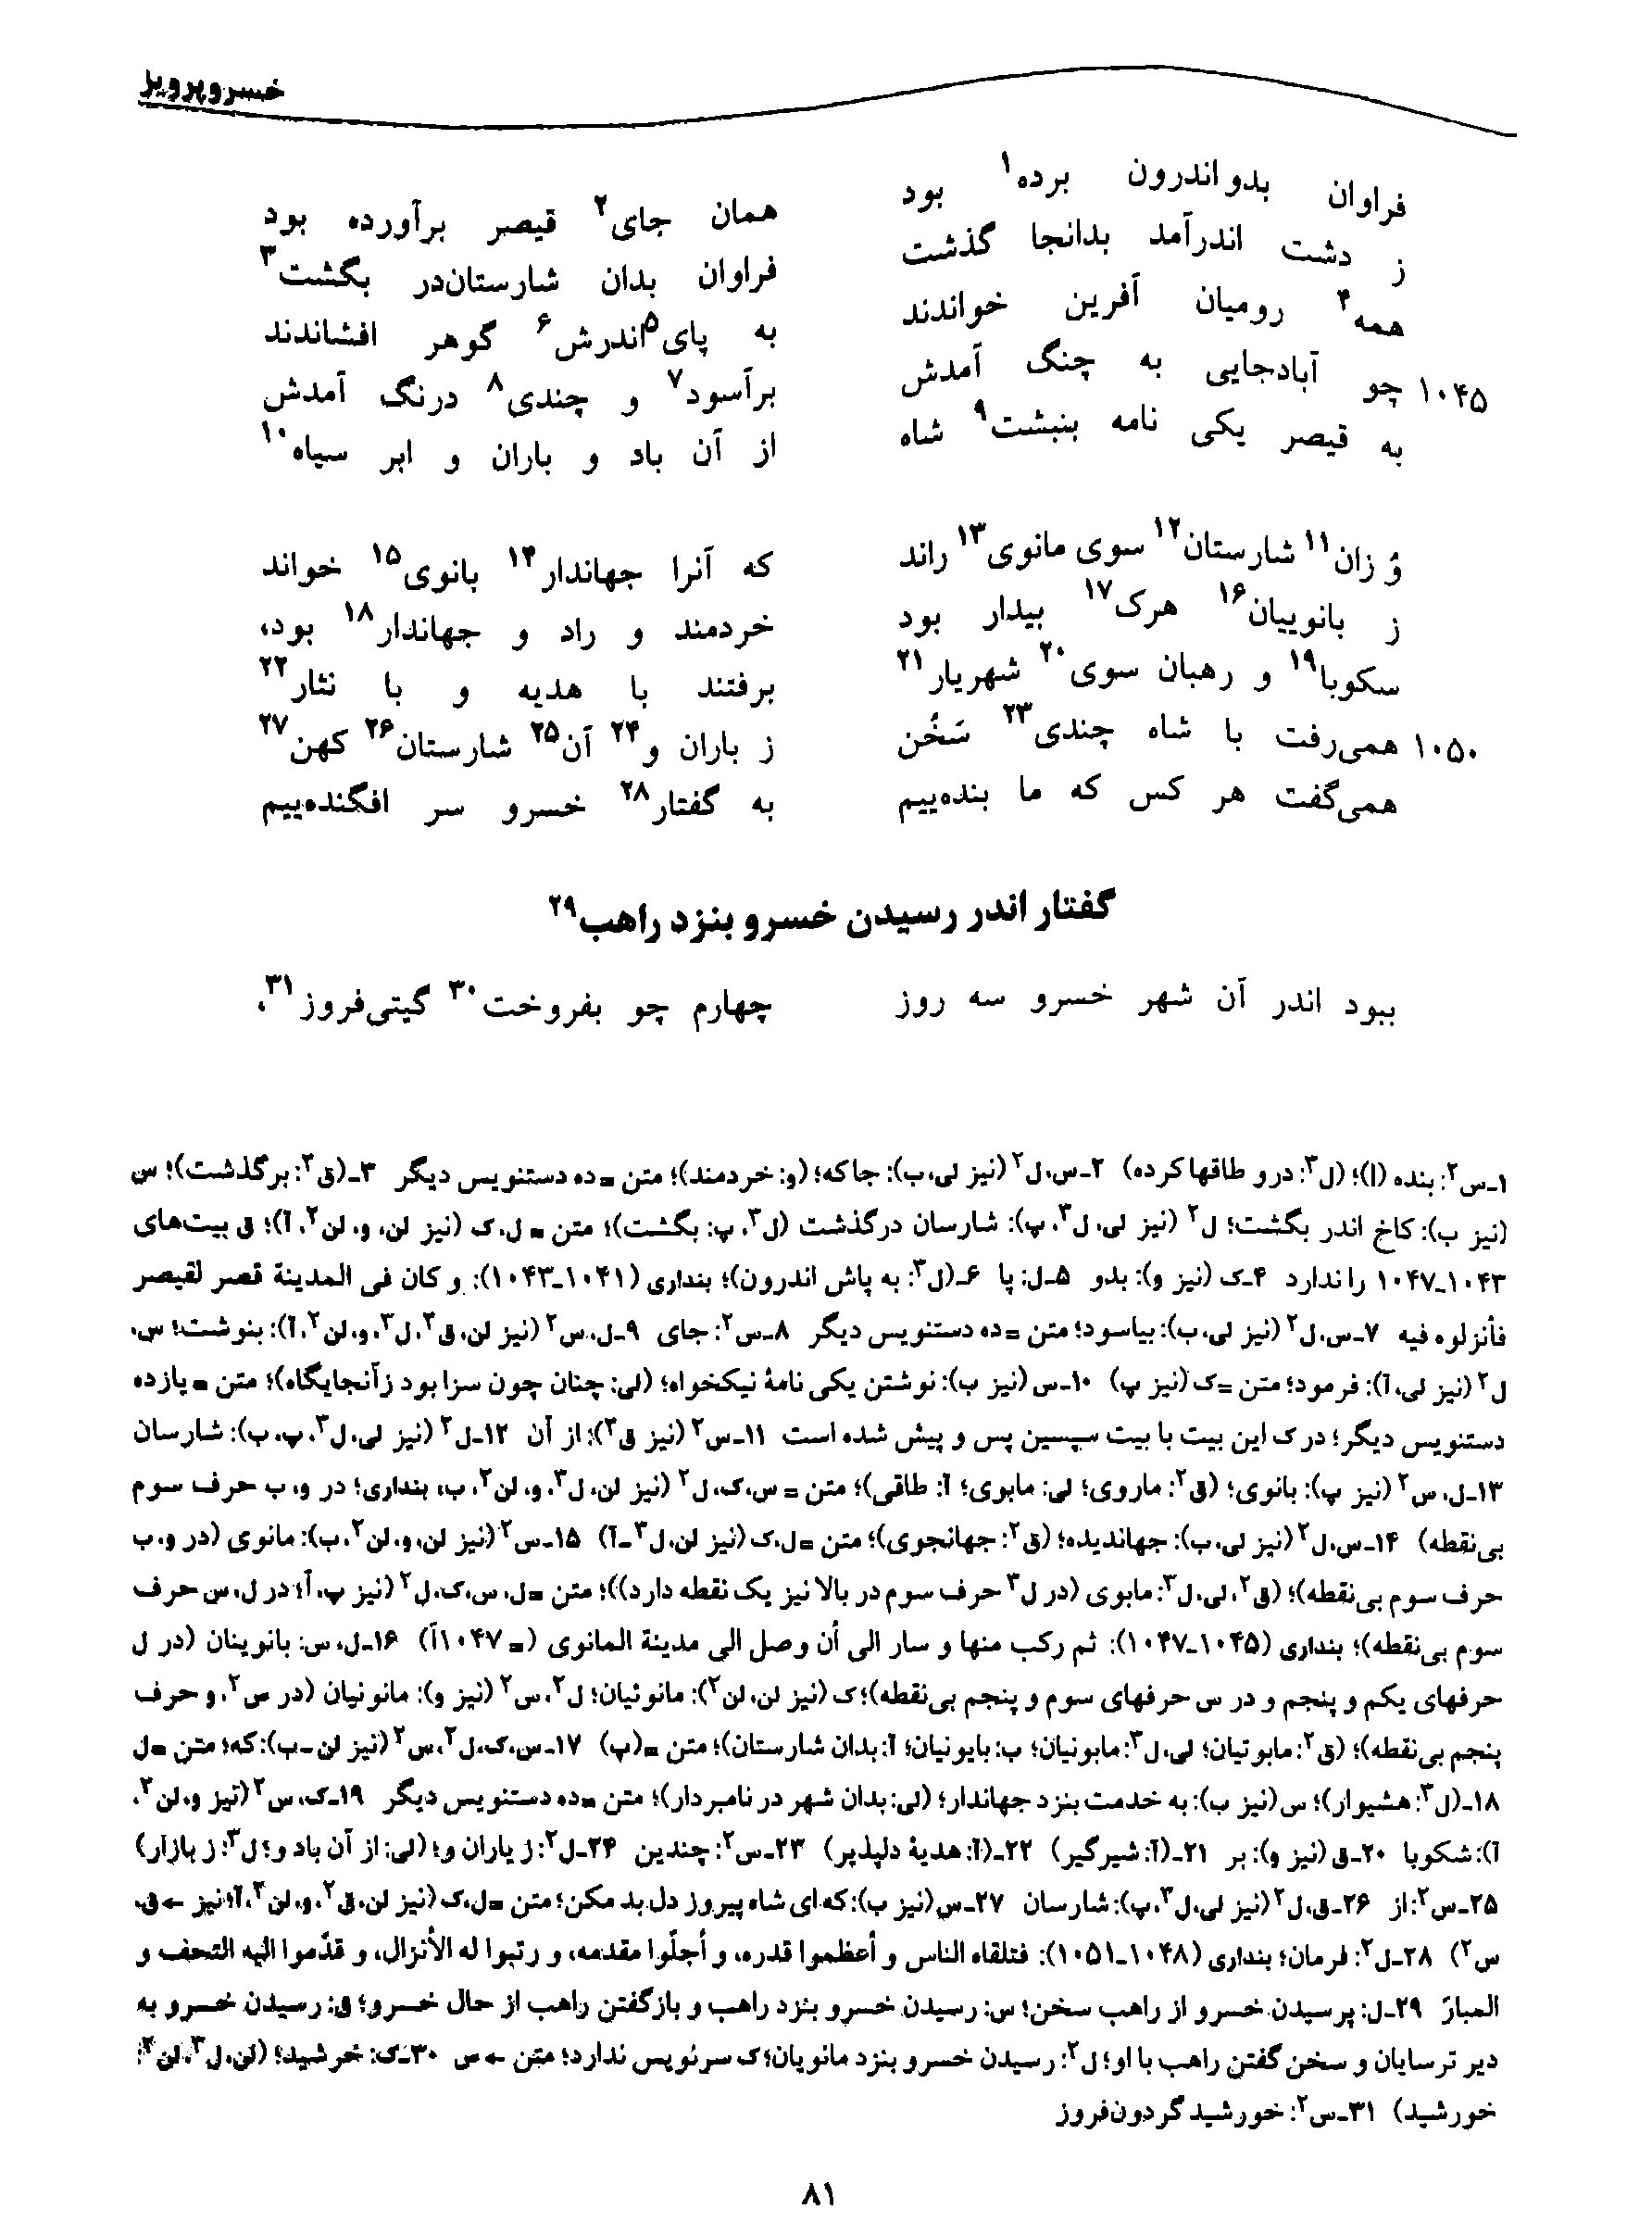 خسروپرویز
فراوان بدو اندرون برده۱ بود همان جای۲ قیصر برآورده بود
ز دشت اندرآمد بدانجا گذشت فراوان بدان شارستان‌در بگشت۳
همه۴ رومیان آفرین خواندند به پای۵اندرش۶ گوهر افشاندند
۱۰۴۵ چو آبادجایی به چنگ آمدش برآسود۷ و چندی۸ درنگ آمدش
به قیصر یکی نامه بنبشت۹ شاه از آن باد و باران و ابر سیاه۱۰
وُ زان۱۱ شارستان۱۲ سوی مانوی۱۳ راند که آنرا جهاندار۱۴ بانوی۱۵ خواند
ز بانوییان۱۶ هرک۱۷ بیدار بود خردمند و راد و جهاندار۱۸ بود،
سکوبا۱۹ و رهبان سوی۲۰ شهریار۲۱ برفتند با هدیه و با نثار۲۲
۱۰۵۰ همی‌رفت با شاه چندی۲۳ سَخُن ز باران و۲۴ آن۲۵ شارستان۲۶ کهن۲۷
همی‌گفت هر کس که ما بنده‌ییم به گفتار۲۸ خسرو سر افگنده‌ییم
گفتار اندر رسیدن خسرو بنزد راهب۲۹
ببود اندر آن شهر خسرو سه روز چهارم چو بفروخت۳۰ گیتی‌فروز۳۱،
۱ـ‌س۲: بنده (ا)؛ (ل۳: درو طاقها کرده) ۲ـ‌س، ل۲ (نیز لی، ب): جا که؛ (و: خردمند)؛ متن = ده دستنویس دیگر ۳ـ(ق۲: برگذشت)؛ س
(نیز ب): کاخ اندر بگشت؛ ل۲ (نیز لی، ل۳، پ): شارسان درگذشت (ل۳، پ: بگشت)؛ متن = ل، ک (نیز لن، و، لن۲، آ)؛ ق بیت‌های
۱۰۴۳ـ۱۰۴۷ را ندارد ۴ـ‌ک (نیز و): بدو ۵ـ‌ل: پا ۶ـ(ل۳: به پاش اندرون)؛ بنداری (۱۰۴۱ـ۱۰۴۳): و کان فی المدینة قصر لقیصر
فأنزلوه فیه ۷ـ‌س، ل۲ (نیز لی، ب): بیاسود؛ متن = ده دستنویس دیگر ۸ـ‌س۲: جای ۹ـ‌ل، س۲ (نیز لن، ق۲، ل۳، و، لن۲، آ): بنوشت؛ س،
ل۲ (نیز لی، آ): فرمود؛ متن = ک (نیز پ) ۱۰ـ‌س (نیز ب): نوشتن یکی نامهٔ نیکخواه؛ (لی: چنان چون سزا بود زآنجایگاه)؛ متن = یازده
دستنویس دیگر؛ در ک این بیت با بیت سپسین پس و پیش شده است ۱۱ـ‌س۲ (نیز ق۲): از آن ۱۲ـ‌ل۲ (نیز لی، ل۳، پ، ب): شارسان
۱۳ـ‌ل، س۲ (نیز پ): بانوی؛ (ق۲: ماروی؛ لی: مابوی؛ آ: طاقی)؛ متن = س، ک، ل۲ (نیز لن، ل۳، و، لن۲، ب، بنداری؛ در و، ب حرف سوم
بی‌نقطه) ۱۴ـ‌س، ل۲ (نیز لی، ب): جهاندیده؛ (ق۲: جهانجوی)؛ متن = ل، ک (نیز لن، ل۳ـ‌آ) ۱۵ـ‌س۲ (نیز لن، و، لن۲، ب): مانوی (در و، ب
حرف سوم بی‌نقطه)؛ (ق۲، لی، ل۳: مابوی (در ل۳ حرف سوم در بالا نیز یک نقطه دارد))؛ متن = ل، س، ک، ل۲ (نیز پ، آ؛ در ل، س حرف
سوم بی‌نقطه)؛ بنداری (۱۰۴۵ـ۱۰۴۷): ثم رکب منها و سار الی أن وصل الی مدینة المانوی (= ۱۰۴۷آ) ۱۶ـ‌ل، س: بانوینان (در ل
حرفهای یکم و پنجم و در س حرفهای سوم و پنجم بی‌نقطه)؛ ک (نیز لن، لن۲): مانوئیان؛ ل۲، س۲ (نیز و): مانونیان (در س۲، و حرف
پنجم بی‌نقطه)؛ (ق۲: مابوتیان؛ لی، ل۳: مابونیان؛ ب: بایونیان؛ آ: بدان شارستان)؛ متن = (پ) ۱۷ـ‌س، ک، ل۲، س۲ (نیز لن ـ ب): که؛ متن = ل
۱۸ـ(ل۳: هشیوار)؛ س (نیز ب): به خدمت بنزد جهاندار؛ (لی: بدان شهر در نامبردار)؛ متن = ده دستنویس دیگر ۱۹ـ‌ک، س۲ (نیز و، لن۲،
آ): شکوبا ۲۰ـ‌ق (نیز و): بر ۲۱ـ(آ: شیرگیر) ۲۲ـ(آ: هدیهٔ دلپذیر) ۲۳ـ‌س۲: چندین ۲۴ـ‌ل۲: ز یاران و؛ (لی: از آن باد و؛ ل۳: ز بازار)
۲۵ـ‌س۲: از ۲۶ـ‌ق، ل۲ (نیز لی، ل۳، پ): شارسان ۲۷ـ‌س (نیز ب): که ای شاه پیروز دل بد مکن؛ متن = ل، ک (نیز لن، ق۲، و، لن۲، آ؛ نیز ← ق،
س۲) ۲۸ـ‌ل۲: فرمان؛ بنداری (۱۰۴۸ـ۱۰۵۱): فتلقاه الناس و أعظموا قدره، و أجلّوا مقدمه، و رتبوا له الأنزال، و قدّموا الیه التحف و
المبارّ ۲۹ـ‌ل: پرسیدن خسرو از راهب سخن؛ س: رسیدن خسرو بنزد راهب و بازگفتن راهب از حال خسرو؛ ق: رسیدن خسرو به
دیر ترسایان و سخن گفتن راهب با او؛ ل۲: رسیدن خسرو بنزد مانویان؛ ک سرنویس ندارد؛ متن ← س ۳۰ـ‌ک: خرشید؛ (لن، ل۳، لن۲:
خورشید) ۳۱ـ‌س۲: خورشید گردون‌فروز
۸۱